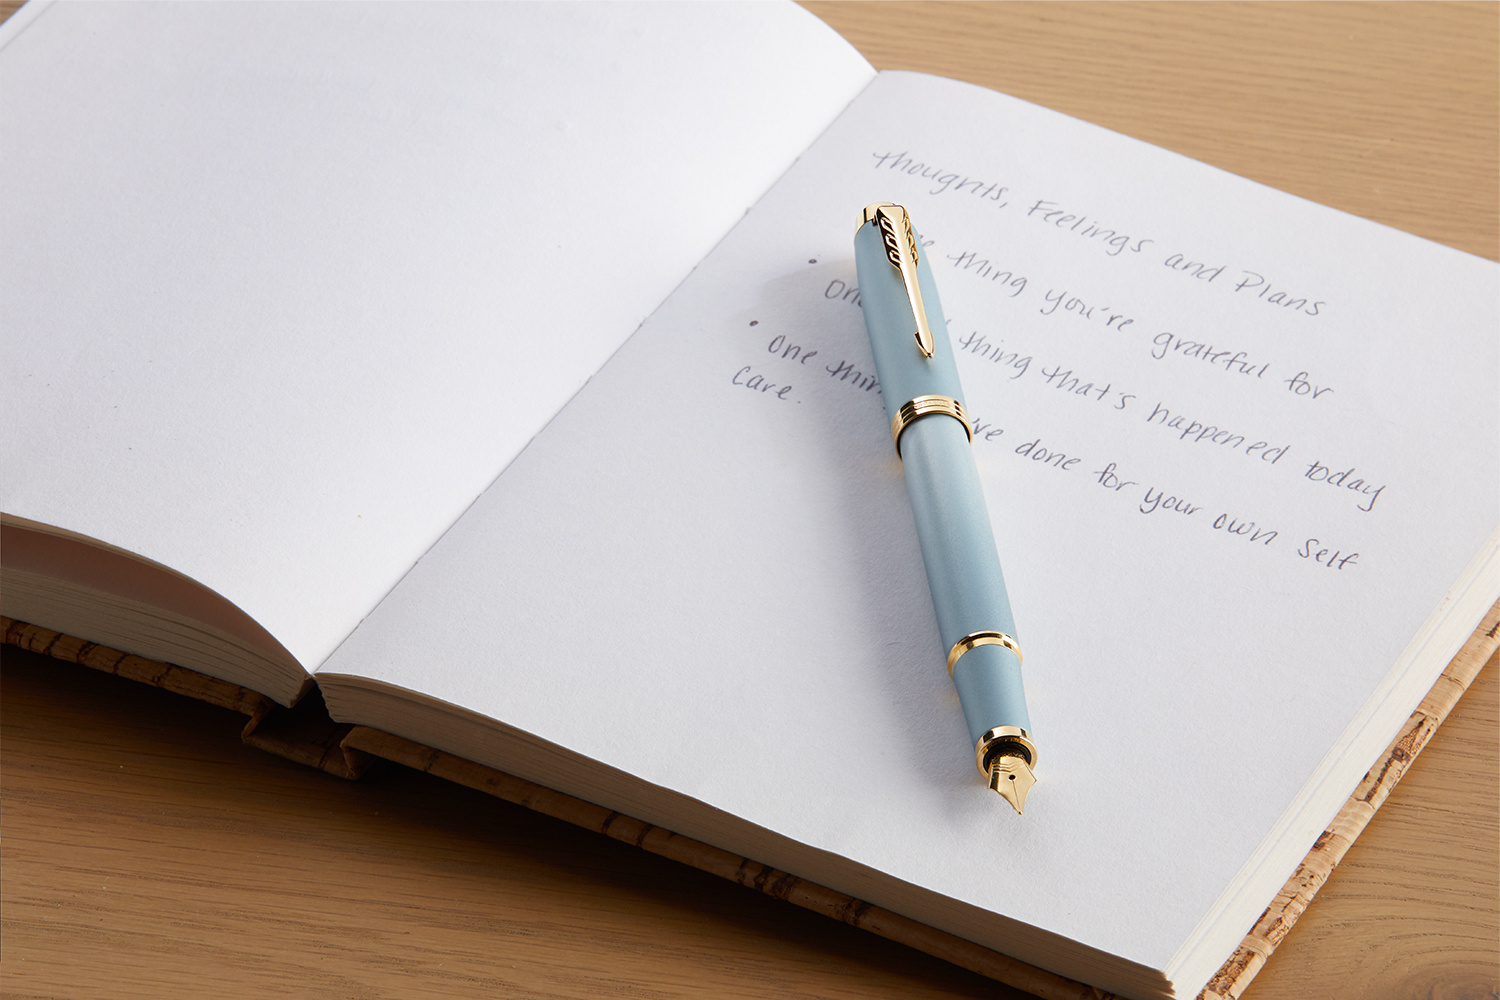 thoughts, Feelings and Plans
thing you're grateful for
• One thing that's happened today
• One thin 've done for your own self
care.